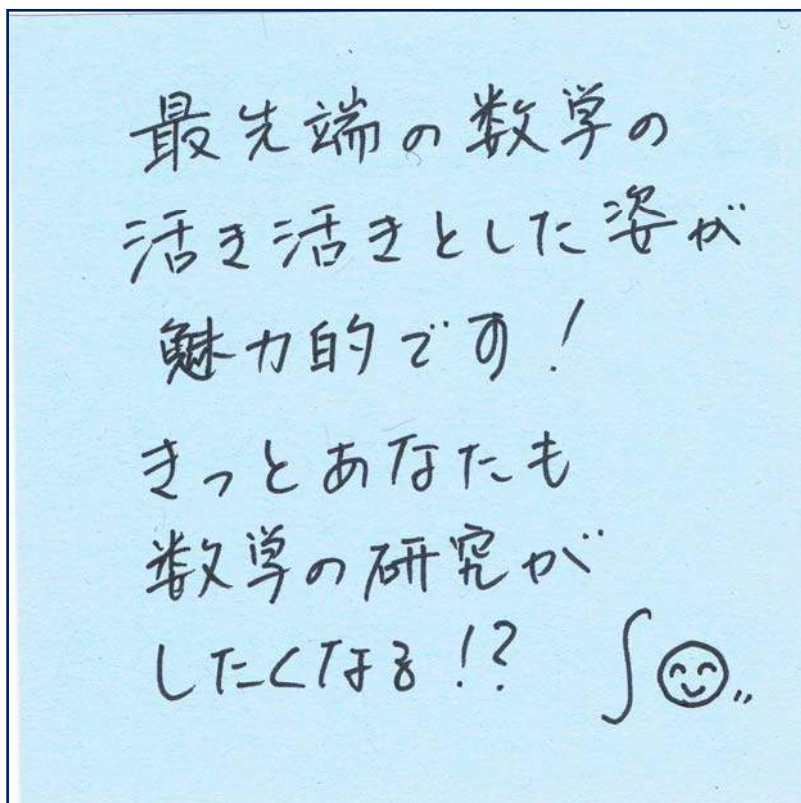 最先端の数学の
活き活きとした姿が
魅力的です！
きっとあなたも
数学の研究が
したくなる！？ ∫